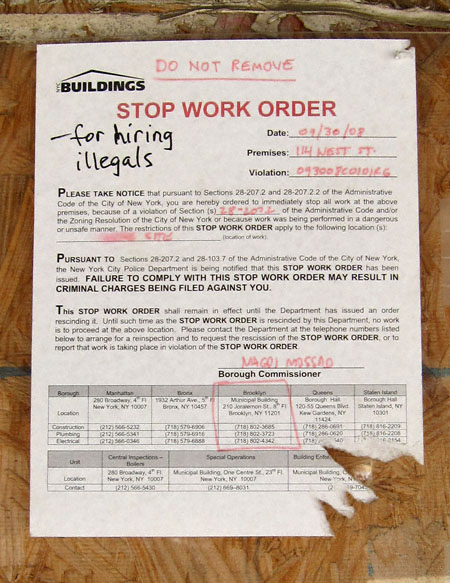 DO NOT REMOVE
NYC BUILDINGS
STOP WORK ORDER
—for hiring
illegals
Date: 09/30/08
Premises: 114 WEST ST.
Violation:
PLEASE TAKE NOTICE that pursuant to Sections 28-207.2 and 28-207.2.2 of the Administrative
Code of the City of New York, you are hereby ordered to immediately stop all work at the above
premises, because of a violation of Section (s) 28-207.2 of the Administrative Code and/or
the Zoning Resolution of the City of New York or because work was being performed in a dangerous
or unsafe manner. The restrictions of this STOP WORK ORDER apply to the following location (s):
(location of work).
PURSUANT TO Sections 207.2 and 28-103.7 of the Administrative Code of the City of New York,
the New York City Police Department is being notified that this STOP WORK ORDER has been
issued. FAILURE TO COMPLY WITH THIS STOP WORK ORDER MAY RESULT IN
CRIMINAL CHARGES BEING FILED AGAINST YOU.
THIS STOP WORK ORDER shall remain in effect until the Department has issued an order
rescinding it. Until such time as the STOP WORK ORDER is rescinded by this Department, no work
is to proceed at the above location. Please contact the Department at the telephone numbers listed
below to arrange for a reinspection and to request the rescission of the STOP WORK ORDER, or to
report that work is taking place in violation of the STOP WORK ORDER
MAGDI MOSSAD
Borough Commissioner
Borough Manhattan Bronx Brooklyn Queens Staten Island
Location 280 Broadway, 4th Fl. New York, NY 10007 1932 Arthur Ave., 5 Bronx, NY 10457 Municipal Building 210 Joralemon St., 8th Fl. Brooklyn, NY 11201 Borough Hall 120-55 Queens Blvd. Kew Gardens, NY 11424 Borough Hall Staten Island, NY 10301
Construction (212) 566-5232 (718) 579-6906 (718) 802-3685 (718) 286-0691 (718) 816-2209
Plumbing (212) 566-5341 (718) 579-6916 (718) 802-3723 (718) 286-0620 (718) 816-2208
Electrical (212) 566-0346 (718) 579-6888 (718) 802-4342 (718) 2154
Unit Central Inspections – Boilers Special Operations Building Enfor
Location 280 Broadway, 4th Fl. New York, NY 10007 Municipal Building, One Centre St., 23rd Fl. New York, NY 10007 Municipal Building, C New York
Contact (212) 566-5430 (212) 669-8031